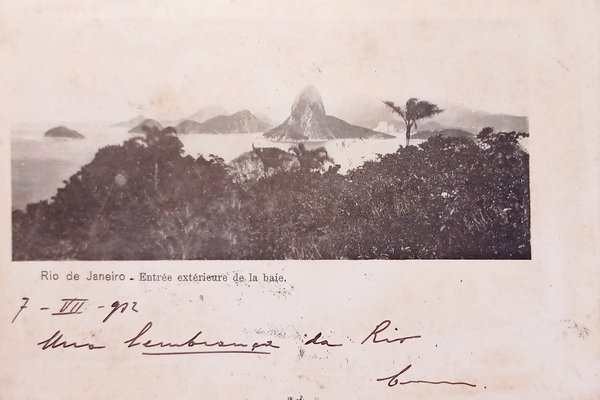 Rio de Janeiro - Entrée extérieure de la baie.
7 - VII - 902
Uma lembrança do Rio.